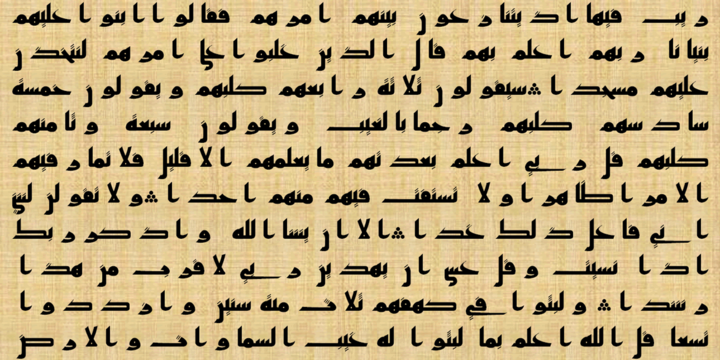 ريب فيها اذ يتنازعون بينهم امرهم فقالوا ابنوا عليهم
بنيانا ربهم اعلم بهم قال الذين غلبوا على امرهم لنتخذن
عليهم مسجدا ∴ سيقولون ثلاثة رابعهم كلبهم ويقولون خمسة
سادسهم كلبهم رجما بالغيب ويقولون سبعة وثامنهم
كلبهم قل ربي اعلم بعدتهم ما يعلمهم الا قليل فلا تمار فيهم
الا مرا ظاهرا ولا تستفت فيهم منهم احدا ∴ ولا تقولن لشي
اني فاعل ذلك غدا ∴ الا ان يشا الله واذكر ربك
اذا نسيت وقل عسى ان يهدين ربي لاقرب من هذا
رشدا ∴ ولبثوا في كهفهم ثلاث مئة سنين وازددوا
تسعا قل الله اعلم بما لبثوا له غيب السماوات والارض